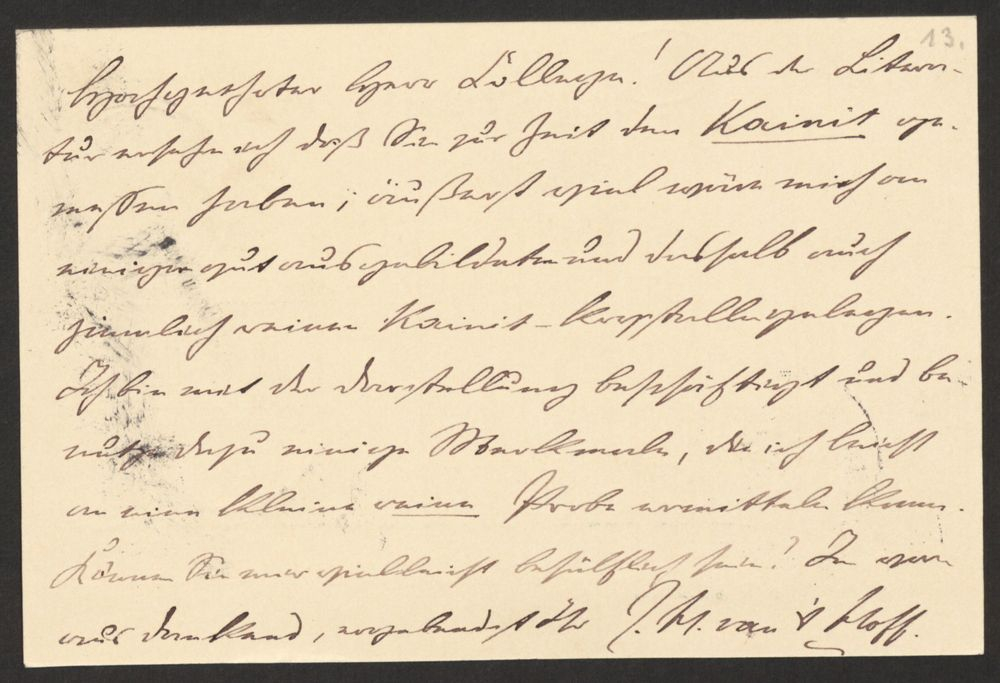 13.
Hochgeehrter Herr College! Aus der Litera-
tur ersehe ich daß Sie zur Zeit den Kainit ge-
messen haben; äußerst viel wäre mir an
einigen gut ausgebildeten und deshalb auch
ziemlich reinen Kainit-krystallen gelegen.
Ich bin mit der Darstellung beschäftigt und be
nutze dazu einige Merkmale, die ich leicht
an eine kleine reine Probe ermitteln kann.
Können Sie mir vielleicht behülflich sein? Im vor
aus dankend, ergebendst Ihr J. H. van 't Hoff.